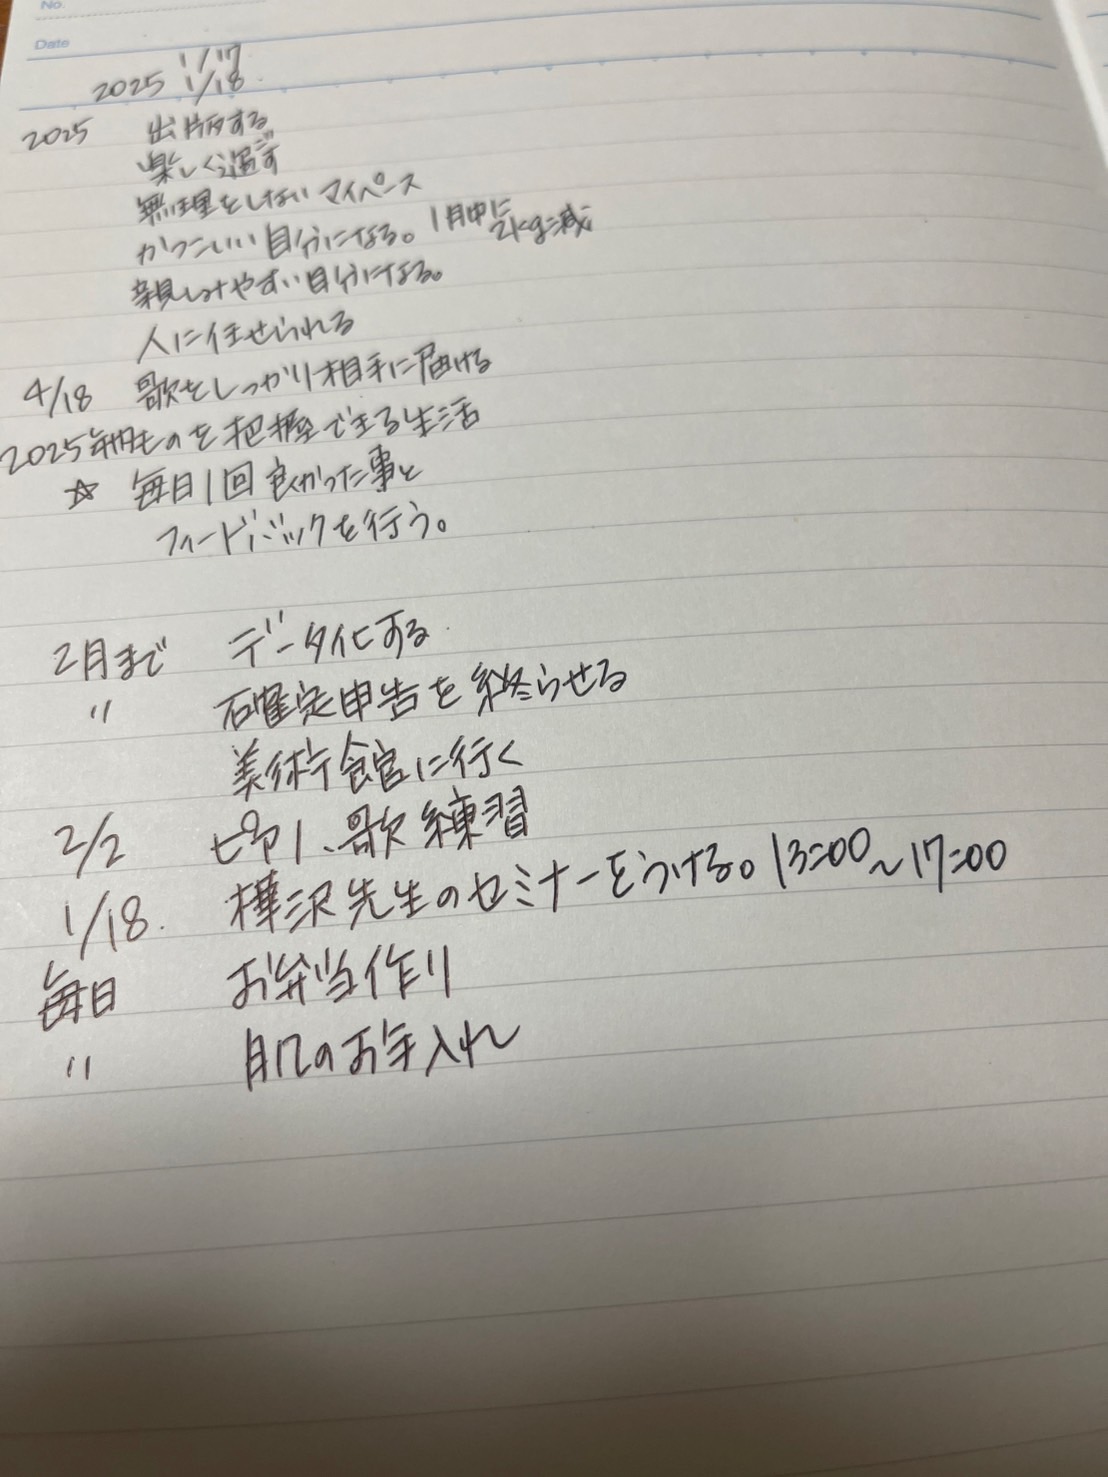 No.
Date
1/17
2025 1/18
2025 出版する
楽しく過ごす
無理をしない マイペース
かっこいい自分になる。1月中に
2kg減
親しみやすい自分になる。
人に任せられる
4/18 歌をしっかり相手に届ける
2025年 ものを把握できる生活
☆ 毎日1回良かった事と
フィードバックを行う。
2月まで データ化する
〃 確定申告を終らせる
美術館に行く
2/2 ピアノ、歌練習
1/18. 樺沢先生のセミナーをうける。13:00~17:00
毎日 お弁当作り
〃 肌のお手入れ